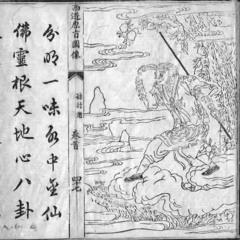 西遊原旨圖像
孫行者
卷首
分明一味水中金仙
佛靈根天地心八卦